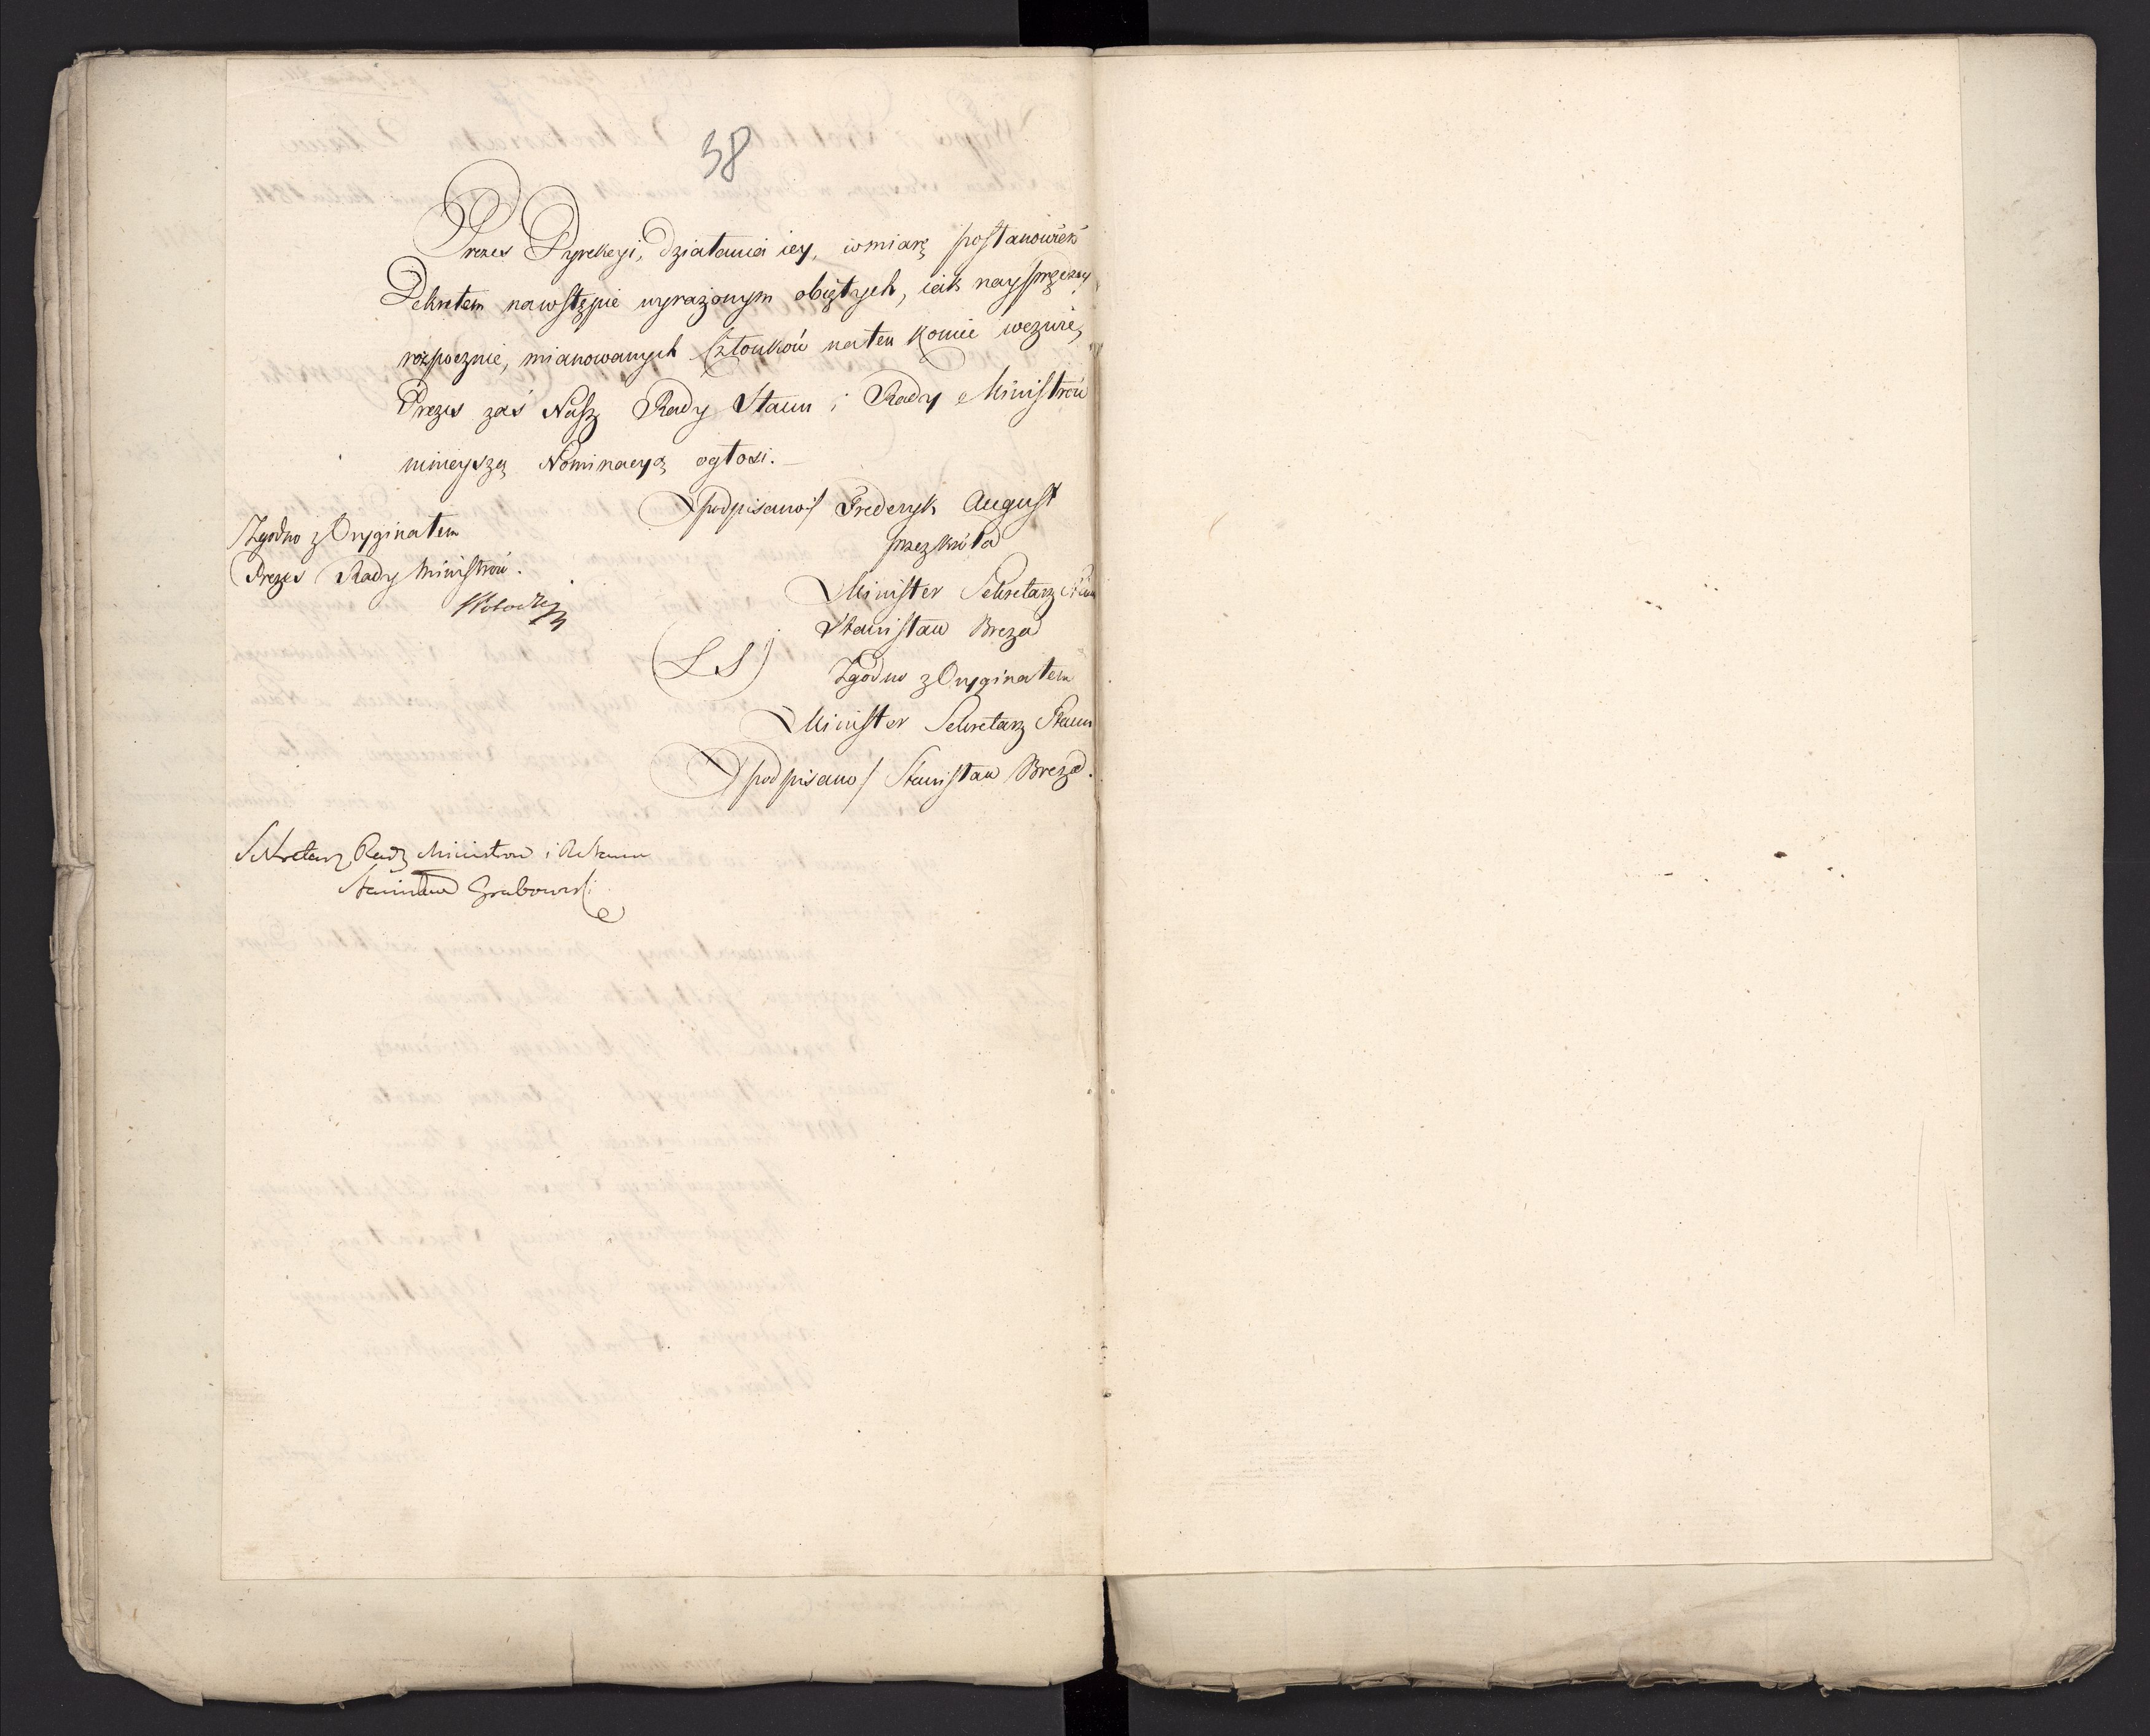 38
Prezes Dyrekcyi, działania iey, wmiarę postanowień
Dekretem nawstępie wyrażonym obiętych, iak nayspręzey
rozpocznie, mianowanych Członków naten koniec wezwie,
Prezes zaś Nasz Rady Stanu i Rady Ministrów
ninieyszą Nominacyą ogłosi. —
/podpisano/ Frederyk August
przez Króla
Minister Sekretarz Stanu
Stanisław Breza
(L S)
Zgodno z Oryginałem
Minister Sekretarz Stanu
/podpisano/ Stanisław Breza.
Zgodno z Oryginałem
Prezes Rady Ministrów.
Sekretarz Rady Ministrow i R. Stanu
Stanisław Grabowski